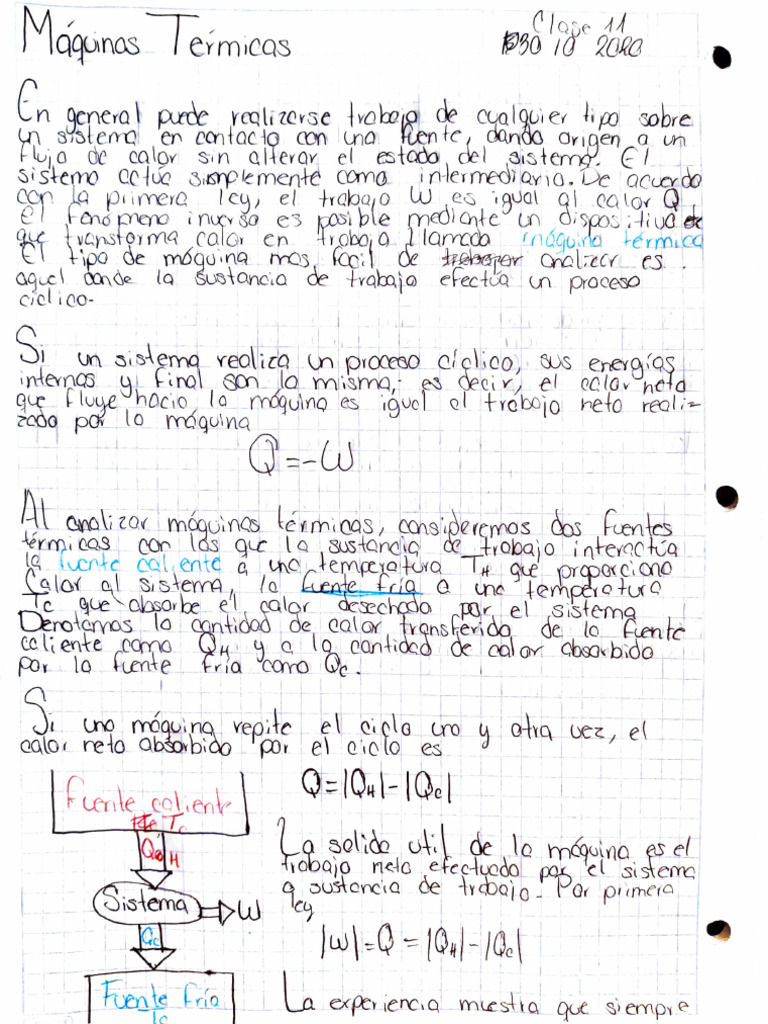 Máquinas Térmicas
Clase 11
30 10 2020
En general puede realizarse trabajo de cualquier tipo sobre
un sistema en contacto con una fuente, dando origen a un
flujo de calor sin alterar el estado del sistema. El
sistema actúa simplemente como intermediario. De acuerdo
con la primera ley, el trabajo W es igual al calor Q,
el fenómeno inverso es posible mediante un dispositivo
que transforma calor en trabajo llamada máquina térmica
El tipo de máquina mas facil de analizar es
aquel donde la sustancia de trabajo efectúa un proceso
cíclico.
Si un sistema realiza un proceso cíclico, sus energías
internas y final son la misma, es decir, el calor neto
que fluye hacia la máquina es igual al trabajo neto reali-
zado por la máquina
Q = -W
Al analizar máquinas térmicas, consideremos dos fuentes
térmicas con las que la sustancia de trabajo interactúa
la fuente caliente a una temperatura TH que proporciona
Calor al sistema, la fuente fría a una temperatura
Tc que absorbe el calor desechado por el sistema
Denotamos la cantidad de calor transferido de la fuente
caliente como QH y a la cantidad de calor absorbido
por la fuente fría como Qc.
Si una máquina repite el ciclo una y otra vez, el
calor neto absorbido por el ciclo es
Q = |QH| - |Qc|
Fuente caliente
Tc
QH
Sistema
W
Qc
Fuente fría
Tc
La salida util de la máquina es el
trabajo neto efectuado por el sistema
a sustancia de trabajo. Por primera
ley
|W| = Q = |QH| - |Qc|
La experiencia muestra que siempre